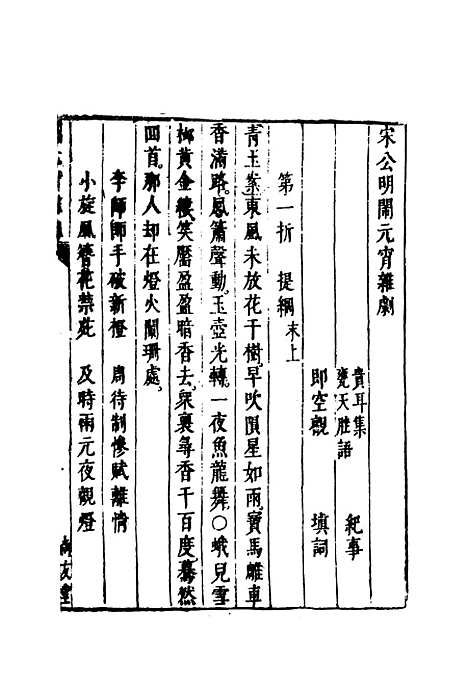 宋公明鬧元宵雜劇
貴耳集
甕天脞語 紀事
即空觀 填詞
第一折 提綱 末上
青玉案。東風未放花千樹。早吹隕星如雨。寶馬雕車
香滿路。鳳簫聲動。玉壺光轉。一夜魚龍舞。○蛾兒雪
柳黃金縷。笑靨盈盈暗香去。衆裏尋香千百度。驀然
回首。那人却在燈火闌珊處。
李師師手破新橙 周待制慘賦離情
小旋風簪花禁苑 及時雨元夜觀燈
尚友堂